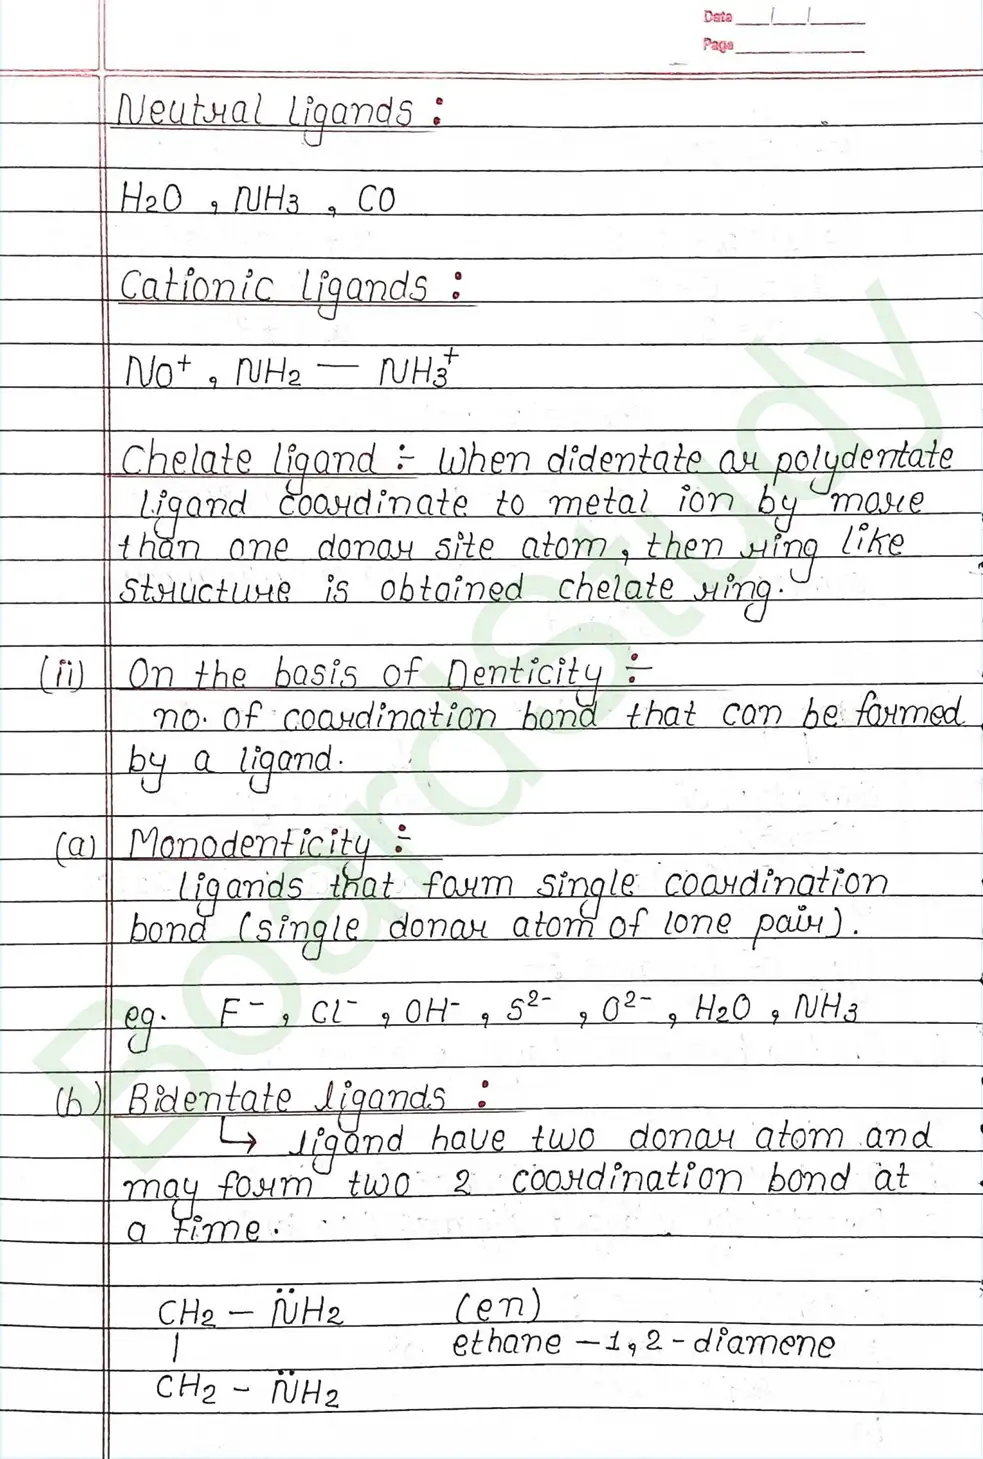 Date / /
Page
Neutral ligands :
H2O , NH3 , CO
Cationic ligands :
No⁺ , NH2 — NH3⁺
Chelate ligand :- When didentate or polydentate
ligand coordinate to metal ion by more
than one donar site atom, then ring like
structure is obtained chelate ring.
(ii) On the basis of Denticity :-
no. of coordination bond that can be formed
by a ligand.
(a) Monodenticity :-
ligands that form single coordination
bond (single donar atom of lone pair).
eg. F⁻ , Cl⁻ , OH⁻ , S²⁻ , O²⁻ , H2O , NH3
(b) Bidentate ligands :
↳ ligand have two donar atom and
may form two 2 coordination bond at
a time.
CH2 — N̈H2 (en)
| ethane —1,2-diamene
CH2 - N̈H2
BoardStudy